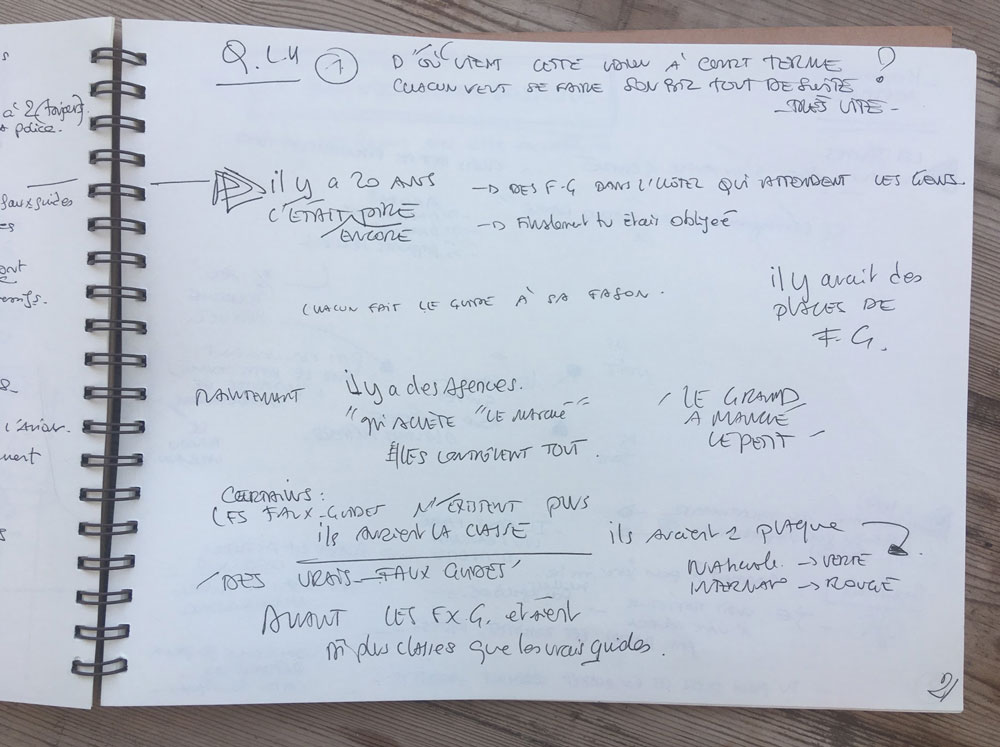 à 2 (toujours).
police.
faux guides
Q.L.4 1 D'Où VIENT CETTE VISION A COURT TERME ?
CHACUN VEUT SE FAIRE SON BIZ TOUT DE SUITE
TRÈS VITE -
il y a 20 ANS → DES F-G DANS L'HÔTEL QUI ATTENDENT LES GENS.
C'ÉTAIT PIRE → Finalement tu étais obligée
ENCORE
il y avait des
PLACES DE
F. G.
CHACUN FAIT LE GUIDE À SA FAÇON.
MAINTENANT il y a des Agences.
"qui ACHÈTE "LE MARCHÉ"
ELLES CONTRÔLENT TOUT.
/ LE GRAND
A MANGÉ
LE PETIT /
CERTAINS :
LES FAUX-GUIDES N'EXISTENT PLUS
ils avaient LA CLASSE
ils avaient 2 plaque
National → VERTE
INTERNAT → ROUGE
/ DES VRAIS-FAUX GUIDES /
AVANT LES FX G. étaient
plus classes que les vrais guides.
2/